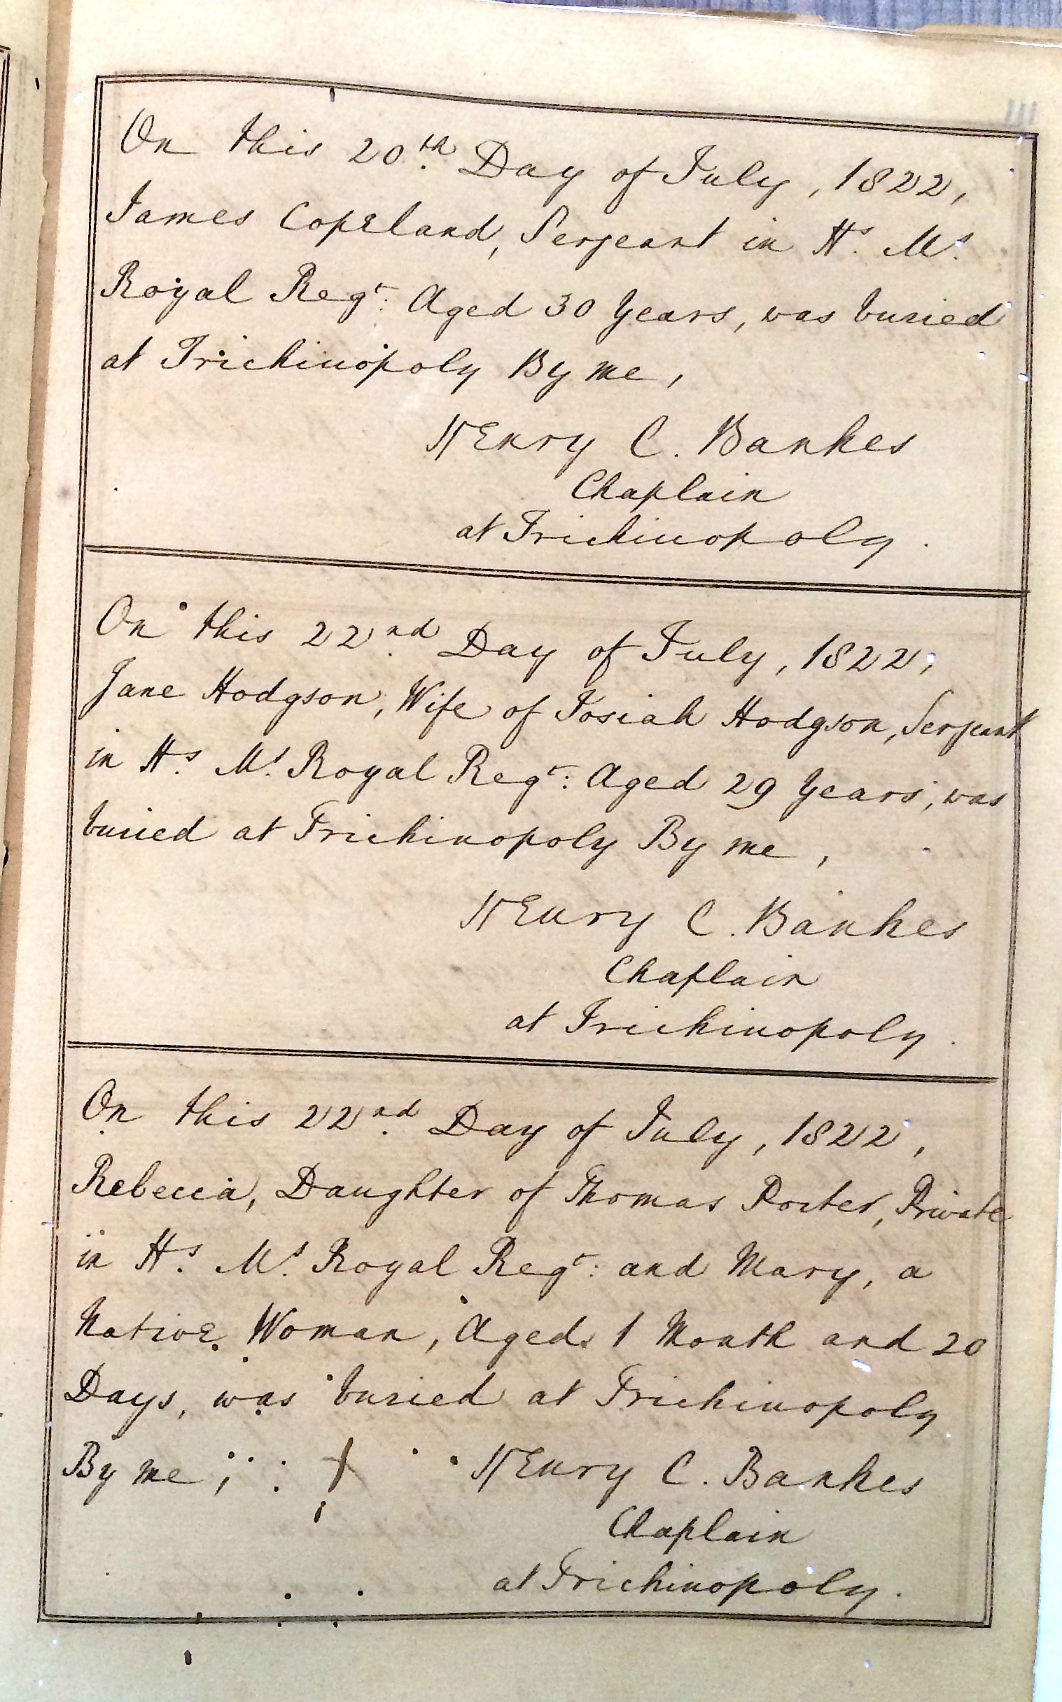 On this 20th Day of July, 1822,
James Copeland, Serjeant in Hs. Ms.
Royal Regt. Aged 30 Years, was buried
at Trichinopoly By me,
Henry C. Bankes
Chaplain
at Trichinopoly.
On this 22nd Day of July, 1822,
Jane Hodgson, Wife of Josiah Hodgson, Serjeant
in Hs. Ms. Royal Regt: Aged 29 Years, was
buried at Trichinopoly By me,
Henry C. Bankes
Chaplain
at Trichinopoly.
On this 22nd Day of July, 1822,
Rebecca, Daughter of Thomas Porter, Private
in Hs. Ms. Royal Regt: and Mary, a
Native Woman, Aged 1 Month and 20
Days, was buried at Trichinopoly
By me, Henry C. Bankes
Chaplain
at Trichinopoly.